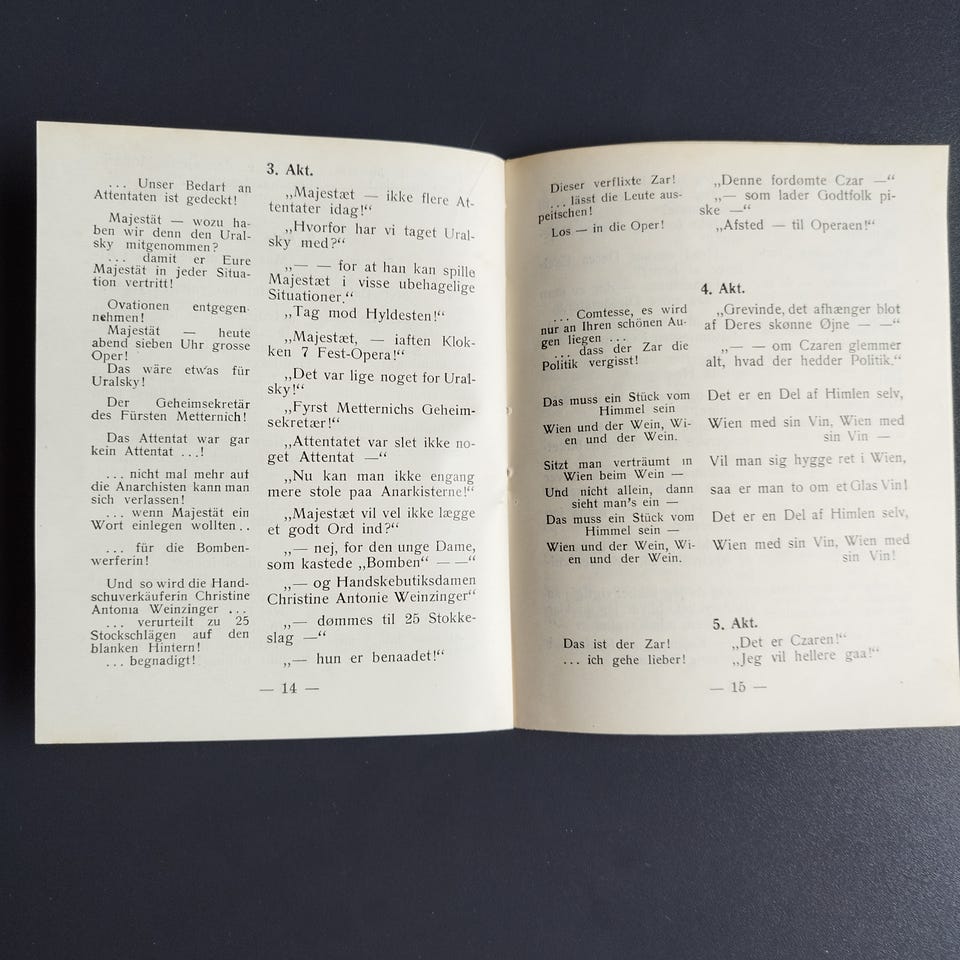 3. Akt.
... Unser Bedarf an
Attentaten ist gedeckt!
Majestät — wozu ha-
ben wir denn den Ural-
sky mitgenommen?
... damit er Eure
Majestät in jeder Situa-
tion vertritt!
Ovationen entgegen-
nehmen!
Majestät — heute
abend sieben Uhr grosse
Oper!
Das wäre etwas für
Uralsky!
Der Geheimsekretär
des Fürsten Metternich!
Das Attentat war gar
kein Attentat ...!
... nicht mal mehr auf
die Anarchisten kann man
sich verlassen!
... wenn Majestät ein
Wort einlegen wollten..
... für die Bomben-
werferin!
Und so wird die Hand-
schuverkäuferin Christine
Antonia Weinzinger ...
... verurteilt zu 25
Stockschlägen auf den
blanken Hintern!
... begnadigt!
„Majestæt — ikke flere At-
tentater idag!“
„Hvorfor har vi taget Ural-
sky med?“
„— — for at han kan spille
Majestæt i visse ubehagelige
Situationer.“
„Tag mod Hyldesten!“
„Majestæt, — iaften Klok-
ken 7 Fest-Opera!“
„Det var lige noget for Ural-
sky!“
„Fyrst Metternichs Geheim-
sekretær!“
„Attentatet var slet ikke no-
get Attentat —“
„Nu kan man ikke engang
mere stole paa Anarkisterne!“
„Majestæt vil vel ikke lægge
et godt Ord ind?“
„— nej, for den unge Dame,
som kastede „Bomben“ — —“
„— og Handskebutiksdamen
Christine Antonie Weinzinger“
„— dømmes til 25 Stokke-
slag —“
„— hun er benaadet!“
— 14 —
Dieser verflixte Zar!
... lässt die Leute aus-
peitschen!
Los — in die Oper!
„Denne fordømte Czar —“
„— som lader Godtfolk pi-
ske —“
„Afsted — til Operaen!“
4. Akt.
... Comtesse, es wird
nur an Ihren schönen Au-
gen liegen ...
... dass der Zar die
Politik vergisst!
„Grevinde, det afhænger blot
af Deres skønne Øjne — —“
„— — om Czaren glemmer
alt, hvad der hedder Politik.“
Das muss ein Stück vom
Himmel sein
Wien und der Wein, Wi-
en und der Wein.
Sitzt man verträumt in
Wien beim Wein —
Und nicht allein, dann
sieht man's ein —
Das muss ein Stück vom
Himmel sein —
Wien und der Wein, Wi-
en und der Wein.
Det er en Del af Himlen selv,
Wien med sin Vin, Wien med
sin Vin —
Vil man sig hygge ret i Wien,
saa er man to om et Glas Vin!
Det er en Del af Himlen selv,
Wien med sin Vin, Wien med
sin Vin!
5. Akt.
Das ist der Zar!
... ich gehe lieber!
„Det er Czaren!“
„Jeg vil hellere gaa!“
— 15 —